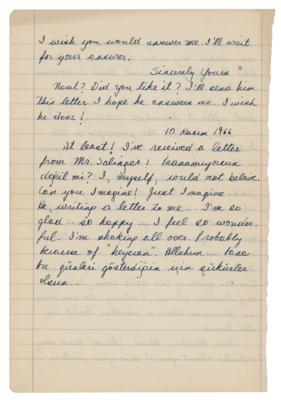 I wish you would answer me. I'll wait
for your answer.
Sincerely Yours"
Nasıl? Did you like it? I'll send him
this letter. I hope he answers me. I wish
he does!
10 Kasım 1966
At least! I've received a letter
from Mr. Salinger! İnanamıyorsun
değil mi? I, myself, would not believe.
Can you imagine! Just imagine....
He, writing a letter to me... I'm so
glad... so happy... I feel so wonder-
ful. I'm shaking all over. Probably
because of "heyecan". Allahım.... bana
bu günleri gösterdiğin için şükürler
olsun...